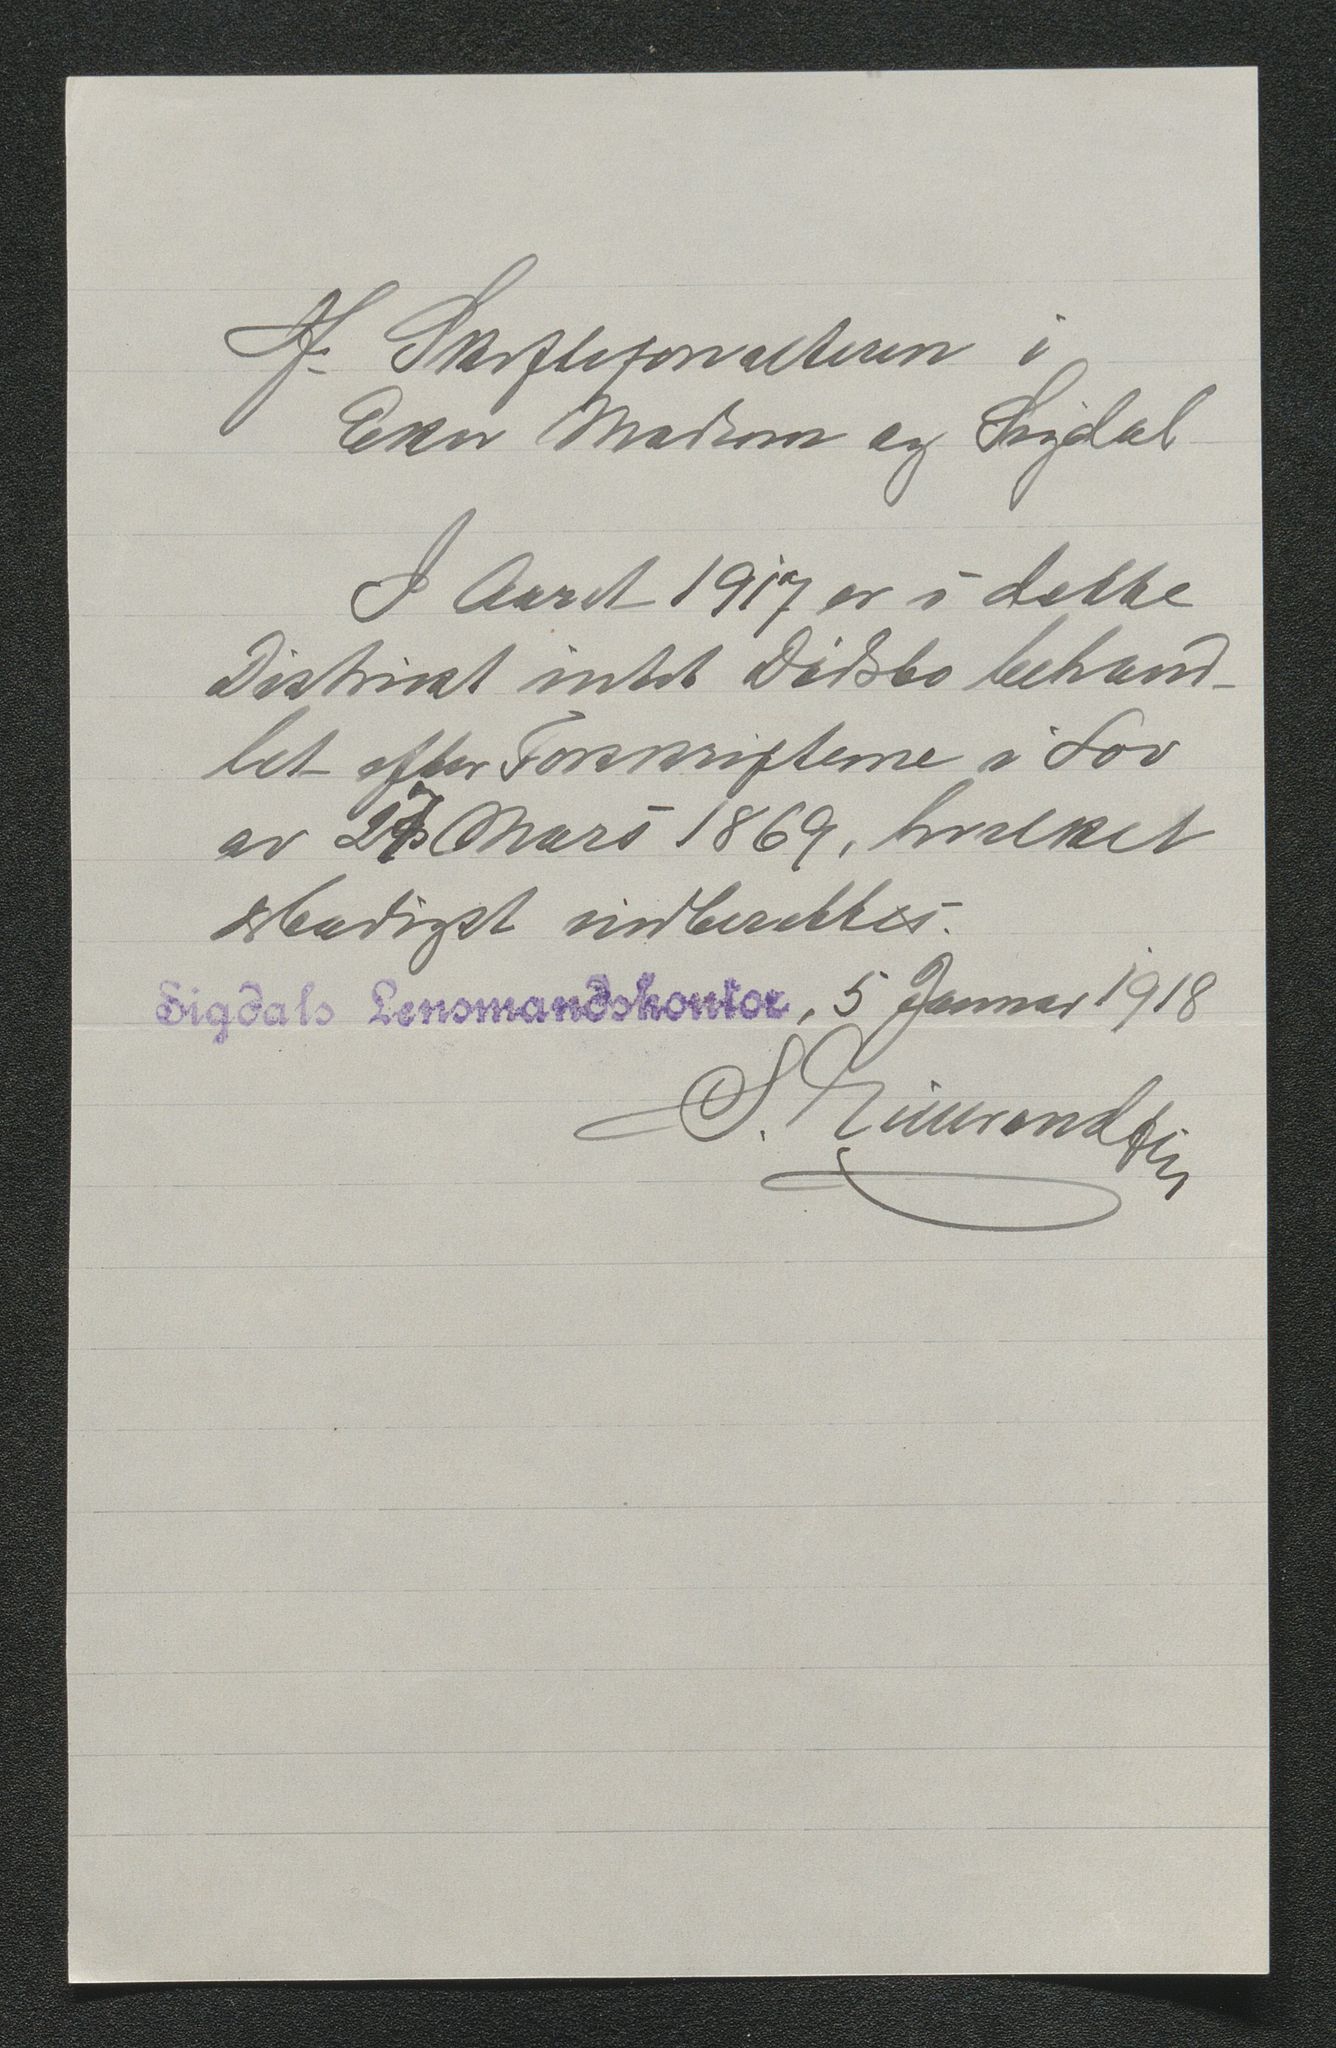 Hr. Skifteforvalteren i
Eker Modum og Sigdal
I Aaret 1917 er i dette
Distrikt intet Dødsbo behand-
let efter Forskrifterne i Lov
av 27 Mars 1869, hvilket
ærbødigst indberettes.
Sigdals Lensmandskontor, 5 Januar 1918
S.